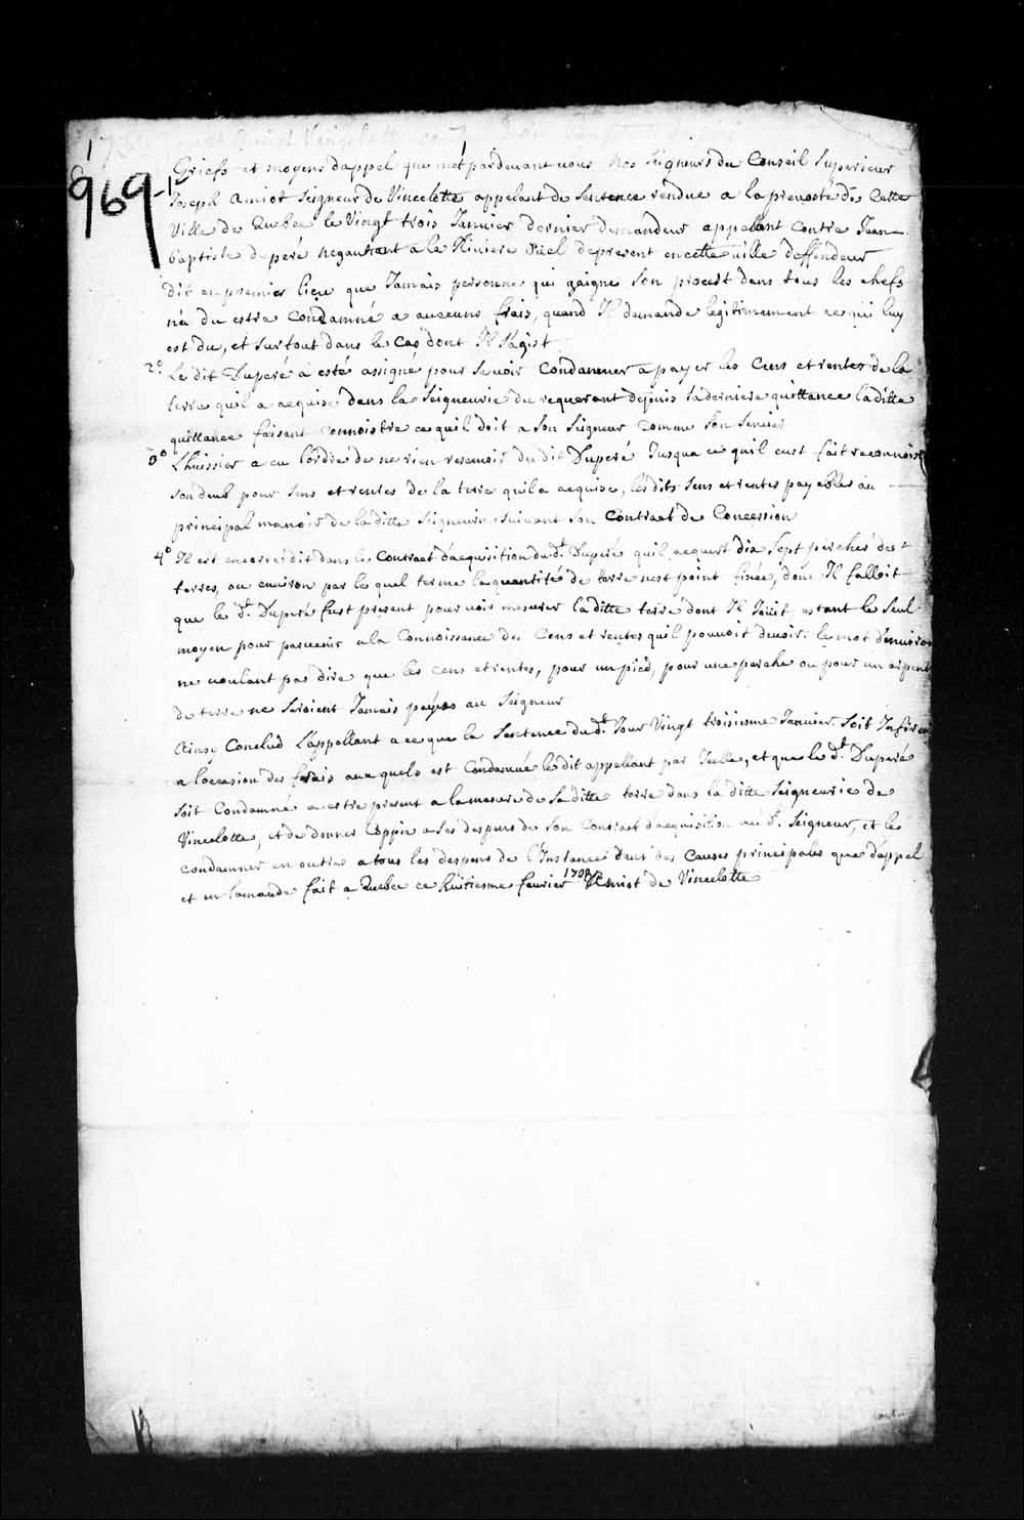 969-1
Griefs et moyens dappel que met pardeuant vous Nos seigneurs du Conseil Superieur
Joseph Amiot Seigneur de Vincelotte appelant de Sentence rendue a la preuosté de Cette
Ville de Quebec le Vingt trois Januier dernier demandeur appellant Contre Jean
baptiste deperé negautiant a la Riuiere oüel depresent en cette uille deffendeur
dit en premier lieu que Jamais personne qui gaigne Son procest dans tous les chefs
na du estre Condamné a aucuns frais, quand Il demande legitimement ce qui luy
est du, et surtout dans le Cas dont Il Sagist
2o Le dit Duperé a esté assigné pour se uoir Condamner a payer les Cens et rentes de la
terre quil a acquise dans la Seigneurie du requerant depuis sa derniere quittance laditte
quittance faisant connoistre ce quil doit a son Seigneur comme son
3o Lhuissier a eu lordre de ne rien reseuoir du dit Duperé Jusqua ce quil eust fait reconnoist
son deub pour sens et rentes de la terre quil a acquise, les dits sens et rentes payables au
principal manoir de la ditte Seigneurie suiuant son Contract de Concession
4o Il est encorre dit dans le Contract dacquisition du dt. Duperé quil acquert dix sept perches de
terres, ou enuiron par le quel terme la quantité de terre nest point fixée, donc Il falloit
que le dt. Duperé fust present pour uoir mesurer laditte terre dont Il Joüit estant le seul
moyen pour paruenir a la Connoissance des Cens et rentes quil pouuoit deuoir: le mot denuiron
ne uoulant pas dire que les cens et rentes, pour un pied, pour une perche ou pour un arpent
de terre ne seroient Jamais payées au Seigneur
Ainsy Conclud Lappellant a ce que la Sentence du dt. Jour Vingt troisiesme Januier soit Infirmée
a loccasion des frais auxquels est Condamné le dit appellant par Icelle, et que le dt. Duperé
soit Condamné a estre present a la mesure de sa ditte terre dans la ditte Seigneurie de
Vincelotte, et de donner Coppie a ses despens de son Contract dacquisition au dt. Seigneur, et le
condamner en outre a tous les despens de l'Instance tant des Causes principales que dappel
et en lamande fait a Quebec ce huitiesme feurier 1708 Amiot de Vincelotte